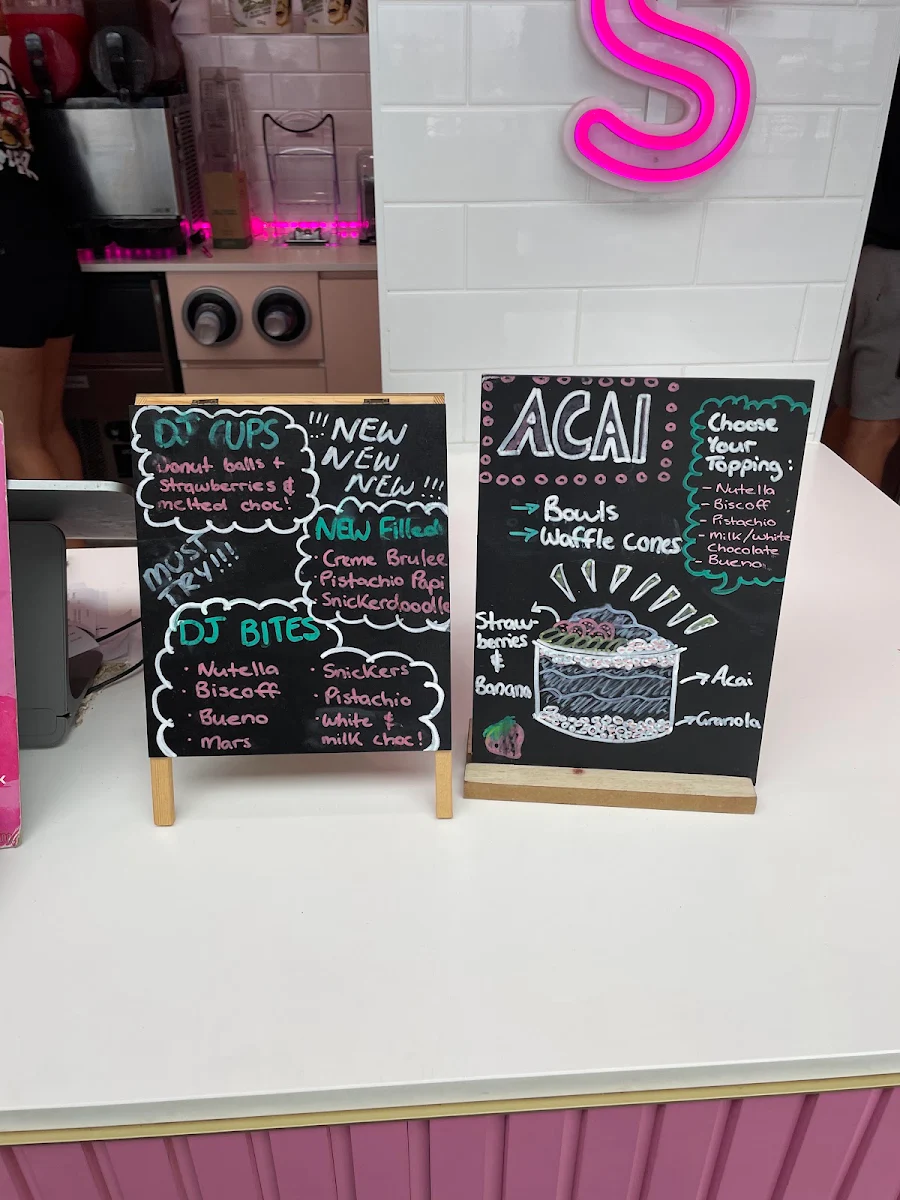 S
DJ CUPS
Donut balls +
Strawberries &
melted choc!
!!! NEW
NEW
NEW !!!
MUST
TRY!!!
NEW Filled
· Creme Brulee
· Pistachio Papi
· Snickerdoodle
DJ BITES
· Nutella
· Biscoff
· Bueno
· Mars
· Snickers
· Pistachio
· white &
milk choc!
ACAI
→ Bowls
→ Waffle cones
Choose
Your
Topping:
- Nutella
- Biscoff
- Pistachio
- Milk/white
Chocolate
- Bueno
Straw-
berries
&
Banana
→ Acai
→ Granola